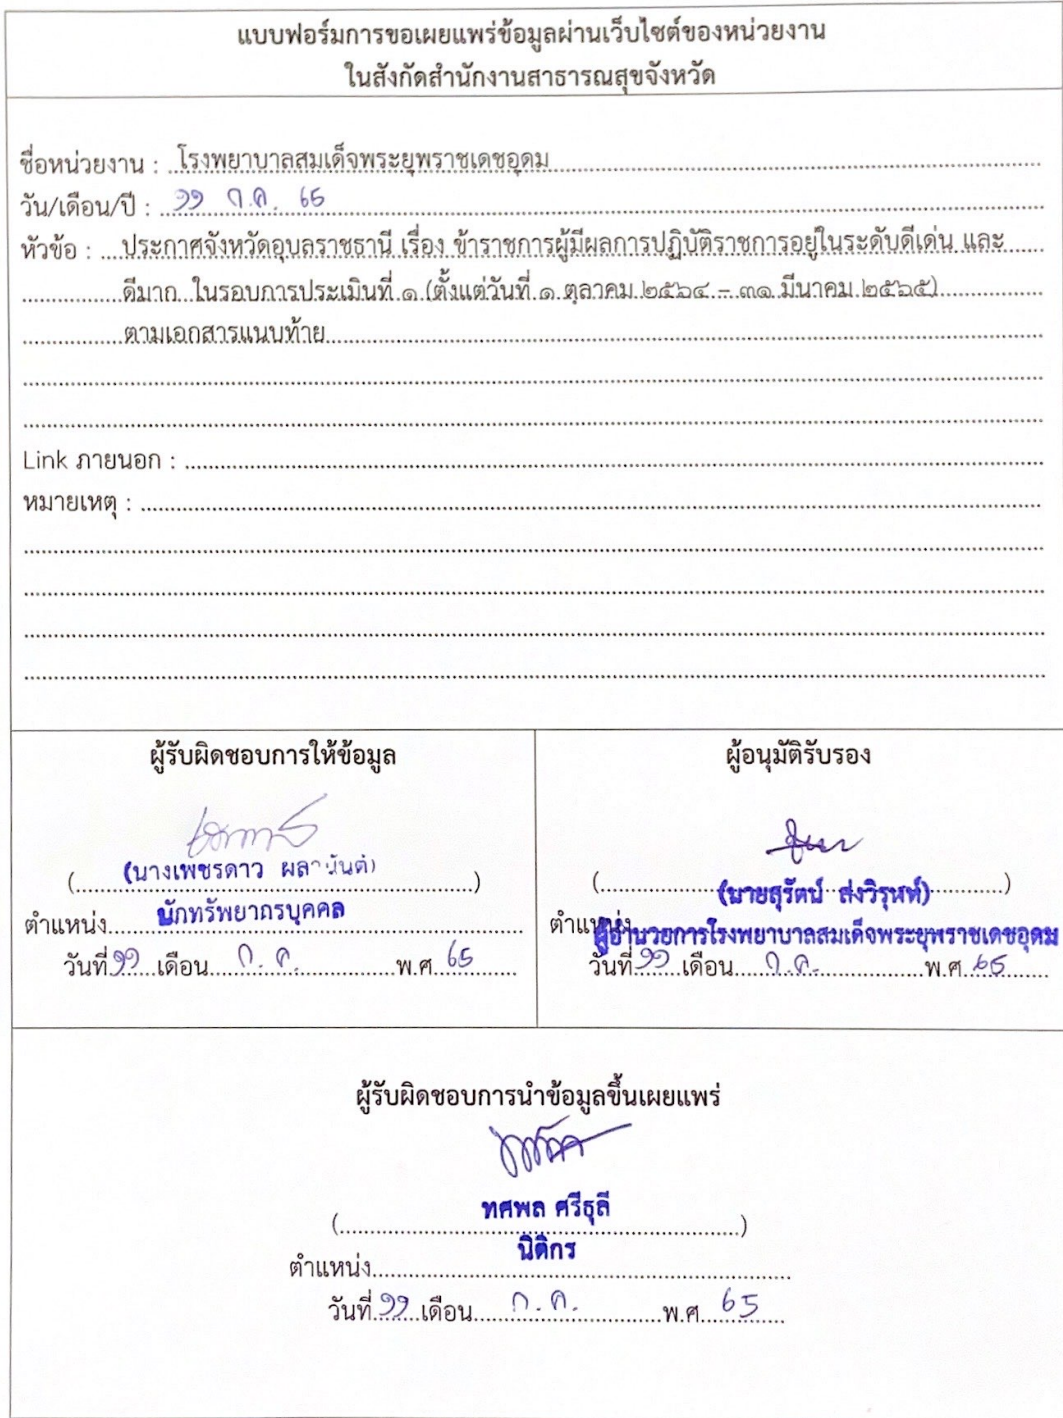 แบบฟอร์มการขอเผยแพร่ข้อมูลผ่านเว็บไซต์ของหน่วยงาน
ในสังกัดสำนักงานสาธารณสุขจังหวัด
ชื่อหน่วยงาน : โรงพยาบาลสมเด็จพระยุพราชเดชอุดม
วัน/เดือน/ปี : ๑๑ ก.ค. 65
หัวข้อ : ประกาศจังหวัดอุบลราชธานี เรื่อง ข้าราชการผู้มีผลการปฏิบัติราชการอยู่ในระดับดีเด่น และ
ดีมาก ในรอบการประเมินที่ ๑ (ตั้งแต่วันที่ ๑ ตุลาคม ๒๕๖๔ – ๓๑ มีนาคม ๒๕๖๕)
ตามเอกสารแนบท้าย
Link ภายนอก :
หมายเหตุ :
ผู้รับผิดชอบการให้ข้อมูล
(นางเพชรดาว)
ตำแหน่ง นักทรัพยากรบุคคล
วันที่ ๑๑ เดือน ก.ค. พ.ศ 65
ผู้อนุมัติรับรอง
(นายสุรัตน์ ส่งวิรุฬห์)
ตำแหน่ง ผู้อำนวยการโรงพยาบาลสมเด็จพระยุพราชเดชอุดม
วันที่ ๑๑ เดือน ก.ค. พ.ศ 65
ผู้รับผิดชอบการนำข้อมูลขึ้นเผยแพร่
(ทศพล ศรีธุลี)
ตำแหน่ง นิติกร
วันที่ ๑๑ เดือน ก.ค. พ.ศ. 65